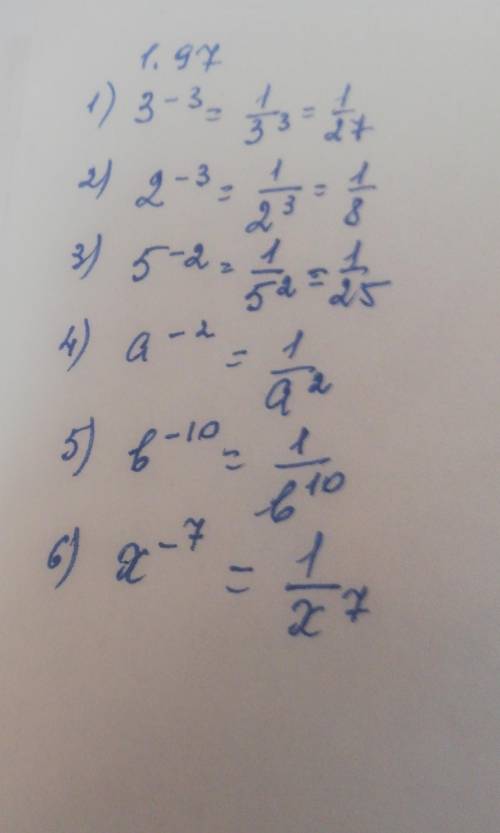 1.97
1) 3⁻³ = 1/3³ = 1/27
2) 2⁻³ = 1/2³ = 1/8
3) 5⁻² = 1/5² = 1/25
4) a⁻² = 1/a²
5) b⁻¹⁰ = 1/b¹⁰
6) x⁻⁷ = 1/x⁷